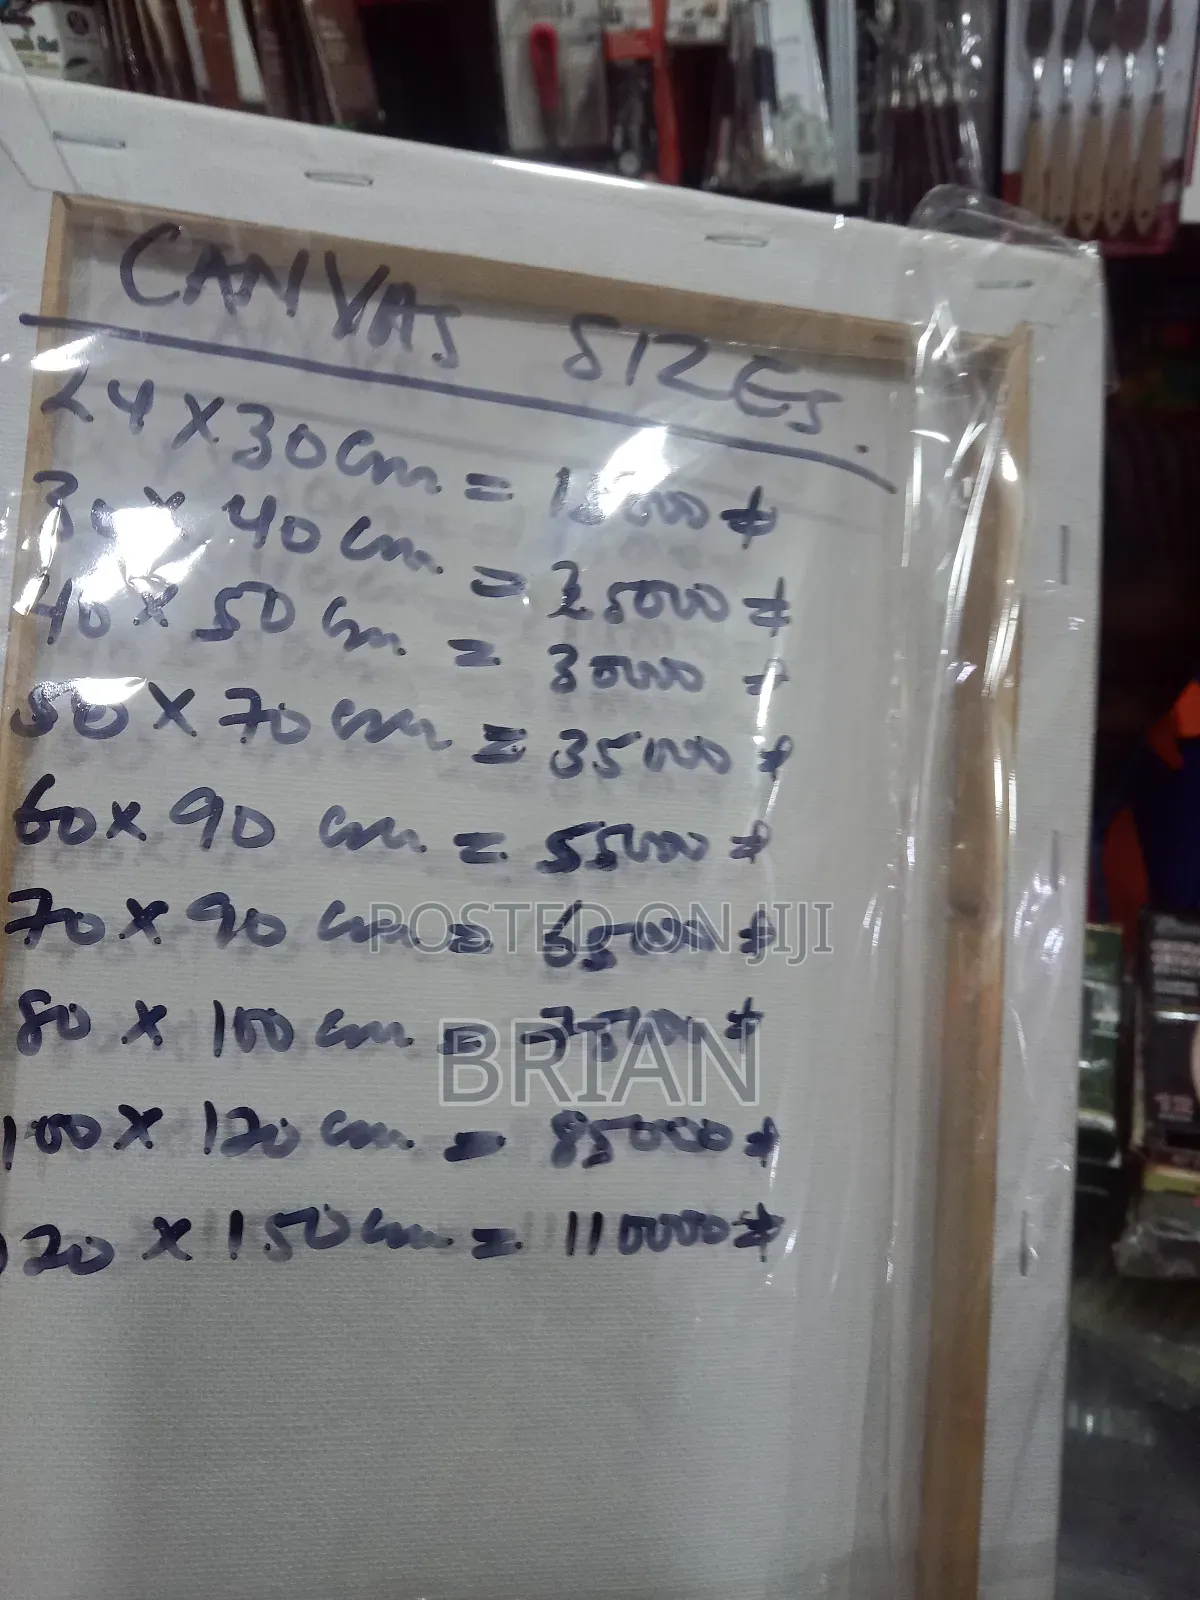 CANVAS SIZES.
24 X 30 cm = 15000 ≠
30 X 40 cm = 25000 ≠
40 X 50 cm = 30000 ≠
50 X 70 cm = 35000 ≠
60 X 90 cm = 55000 ≠
70 X 90 cm = 65000 ≠
POSTED ON JIJI
80 X 100 cm = 75000 ≠
BRIAN
100 X 120 cm = 85000 ≠
120 X 150 cm = 110000 ≠